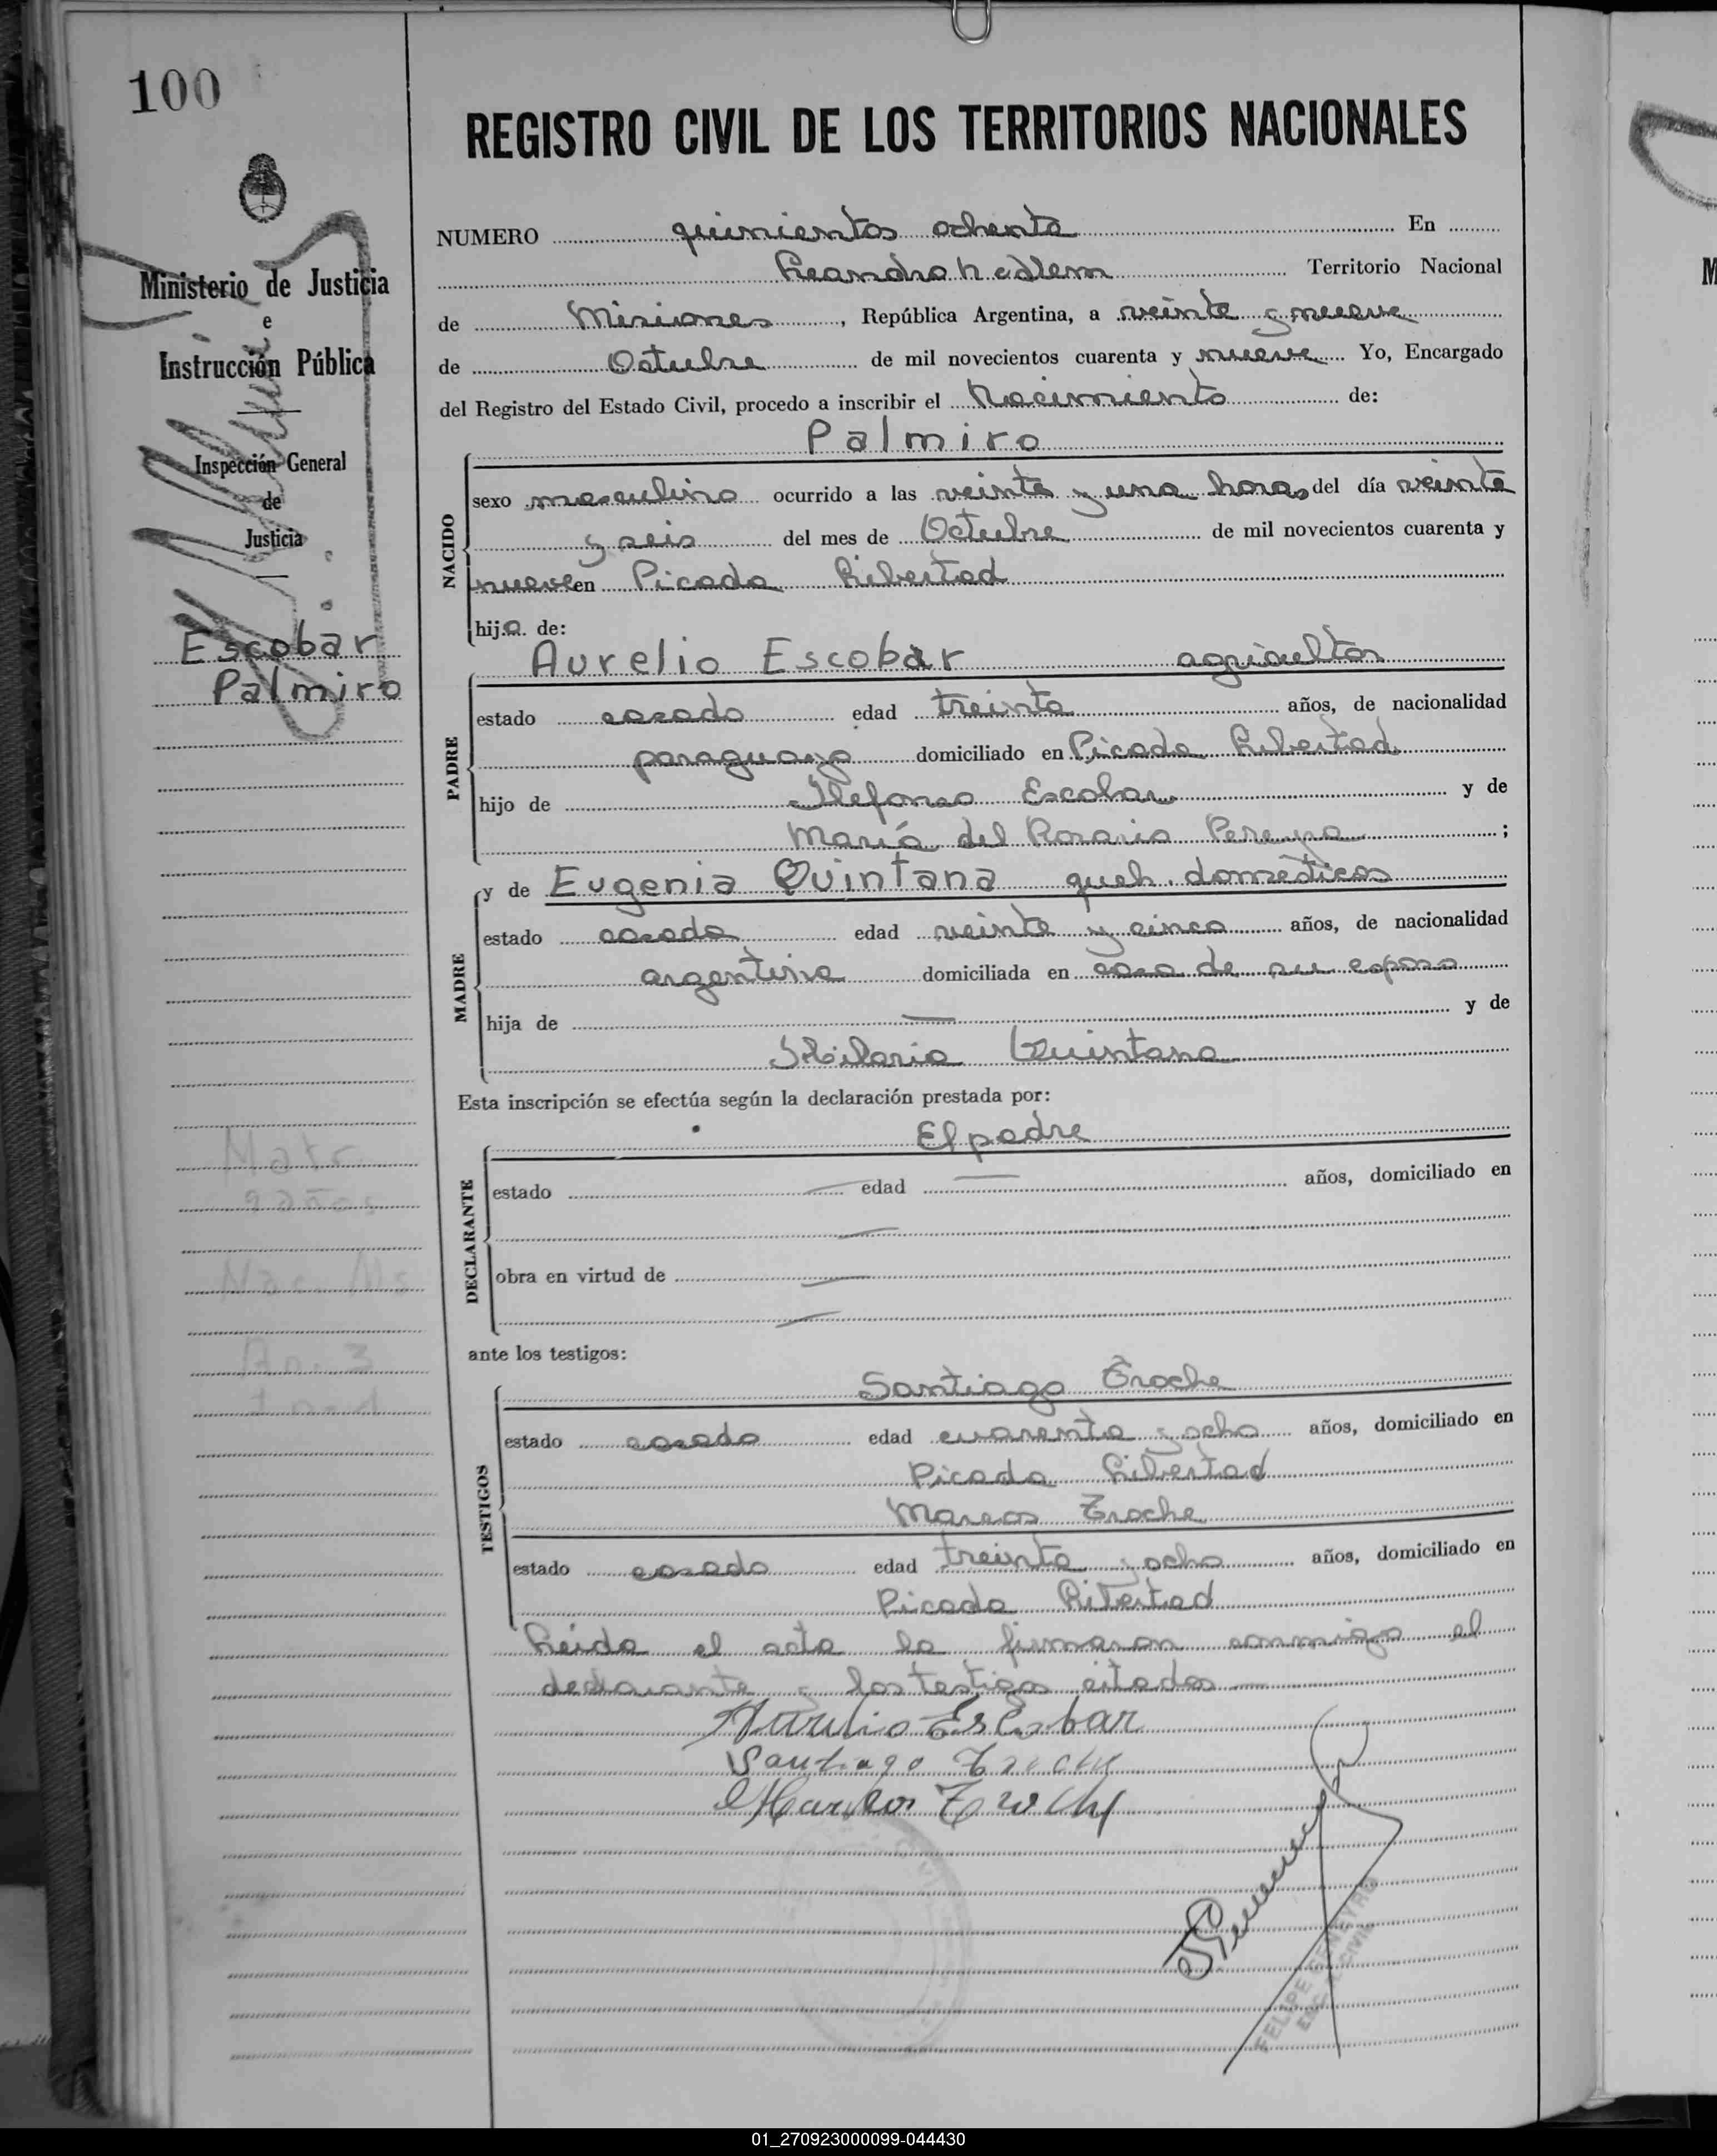 100
Ministerio de Justicia
e
Instrucción Pública
Inspección General
de
Justicia
Escobar
Palmiro
REGISTRO CIVIL DE LOS TERRITORIOS NACIONALES
NUMERO quinientos ochenta En
Leandro N Alem Territorio Nacional
de Misiones, República Argentina, a veinte y nueve
de Octubre de mil novecientos cuarenta y nueve Yo, Encargado
del Registro del Estado Civil, procedo a inscribir el Nacimiento de:
Palmiro
NACIDO
sexo masculino ocurrido a las veinte y una horas del día veinte
y seis del mes de Octubre de mil novecientos cuarenta y
nueve en Picada Libertad
hijo de:
Aurelio Escobar agricultor
PADRE
estado casado edad treinta años, de nacionalidad
paraguaya domiciliado en Picada Libertad
hijo de Ilefonso Escobar y de
María del Rosario Pereyra ;
MADRE
y de Eugenia Quintana queh. domésticos
estado casada edad veinte y cinco años, de nacionalidad
argentina domiciliada en casa de su esposo
hija de — y de
Hilaria Quintana
Esta inscripción se efectúa según la declaración prestada por:
El padre
DECLARANTE
estado — edad — años, domiciliado en
—
obra en virtud de —
—
ante los testigos:
Santiago Troche
TESTIGOS
estado casado edad cuarenta y ocho años, domiciliado en
Picada Libertad
Marcos Troche
estado casado edad treinta y ocho años, domiciliado en
Picada Libertad
Leída el acta la firmaron conmigo el
declarante y los testigos citados
Aurelio Escobar
Santiago Troche
Marcos Troche
FELIPE
ENC. CIVIL
01_270923000099-044430